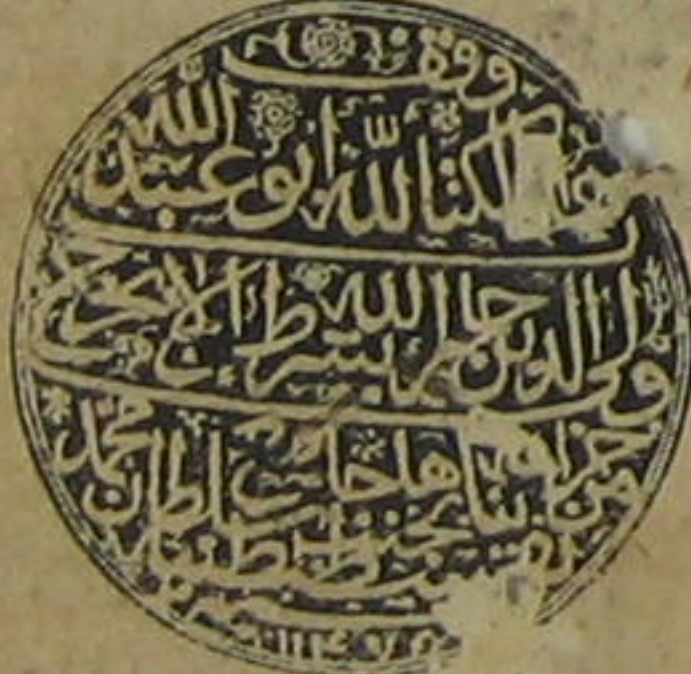 وقف
الكتاب لله ابو عبد الله
ولى الدين جار الله بشرط ان لا يخرج
من خزانة بناها بجنب جامع سلطان محمد
بقسطنطينية